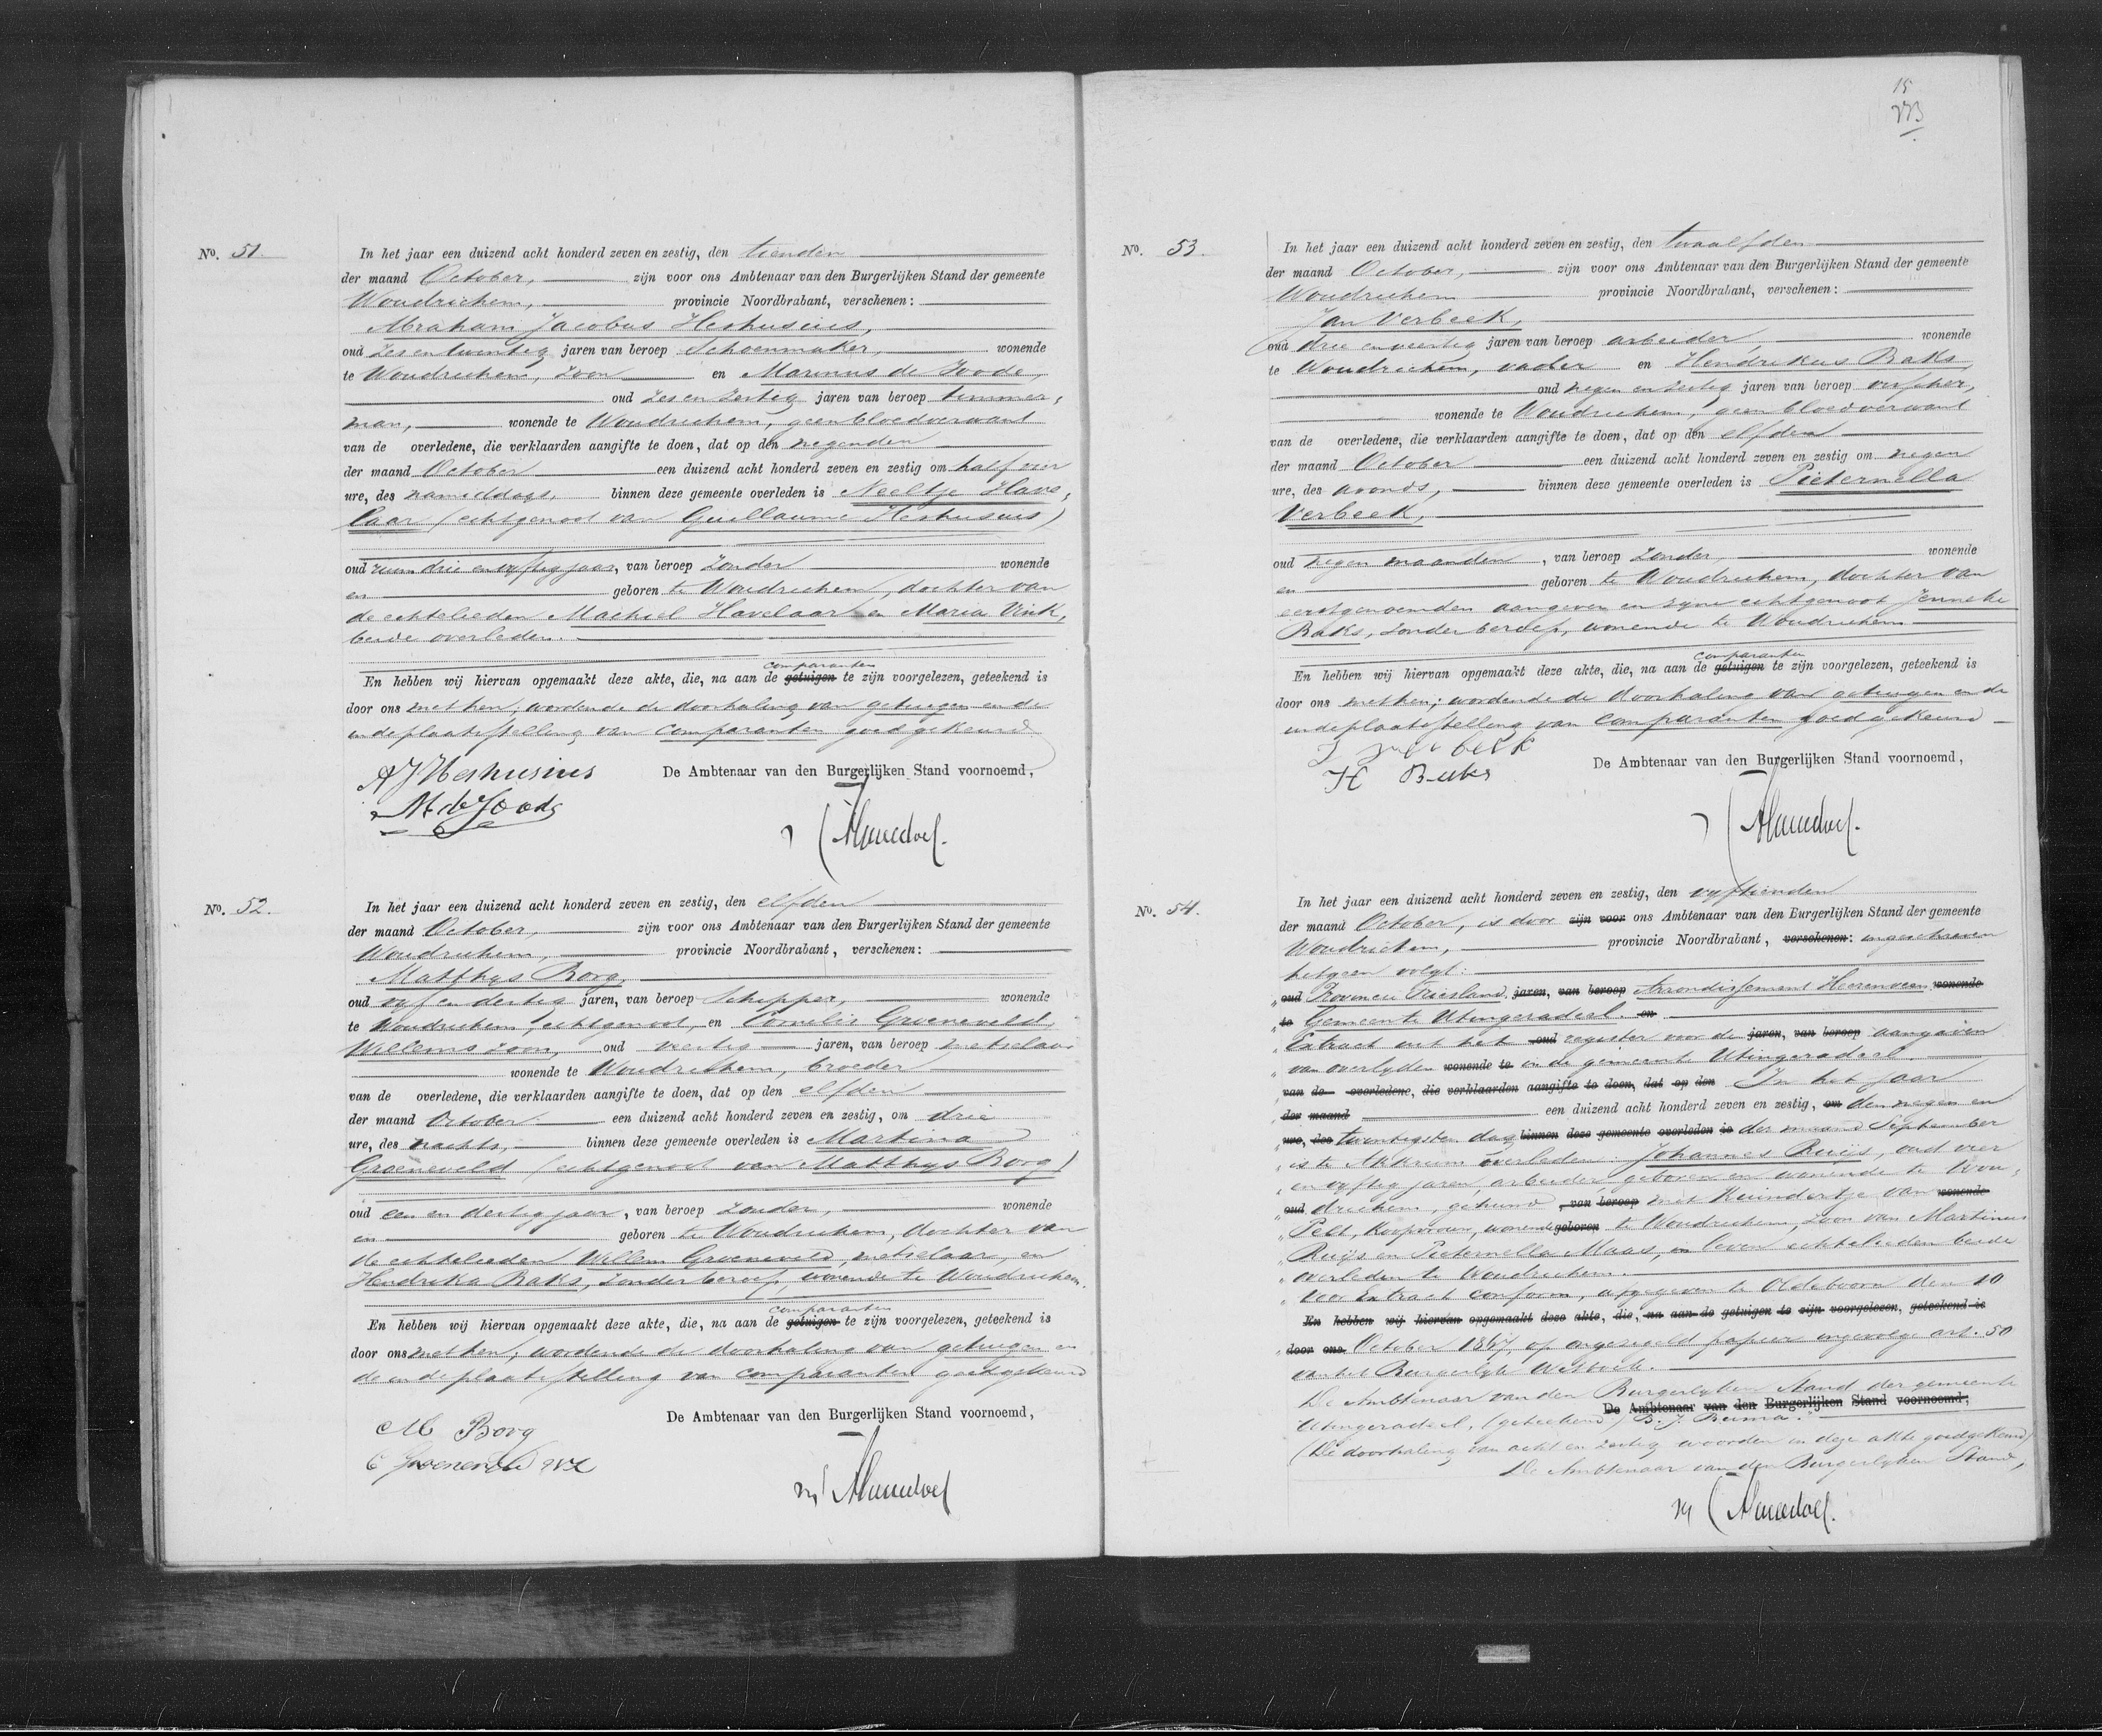 Nº. 51.
In het jaar een duizend acht honderd zeven en zestig, den tienden
der maand October, zijn voor ons Ambtenaar van den Burgerlijken Stand der gemeente
Woudrichem, provincie Noordbrabant, verschenen:
Abraham Jacobus Heshusius,
oud zes en twintig jaren van beroep Schoenmaker, wonende
te Woudrichem, zoon en Marinus de Joode,
oud zes en zestig jaren van beroep timmer,
man, wonende te Woudrichem, geen bloedverwant
van de overledene, die verklaarden aangifte te doen, dat op den negenden
der maand October een duizend acht honderd zeven en zestig om half vier
ure, des namiddags, binnen deze gemeente overleden is Neeltje Have,
laar (echtgenoot van Guillaume Heshusius)
oud ruim drie en vyftig jaar, van beroep zonder wonende
en geboren te Woudrichem, dochter van
de echtelieden Machiel Havelaar en Maria Vink,
beide overleden.
comparanten
En hebben wij hiervan opgemaakt deze akte, die, na aan de getuigen te zijn voorgelezen, geteekend is
door ons met hen, wordende de doorhaling van getuigen en de
indeplaatsstelling van comparanten goedgekeurd
AJ Heshusius
De Ambtenaar van den Burgerlijken Stand voornoemd,
M de Joode
Nº. 52.
In het jaar een duizend acht honderd zeven en zestig, den elfden
der maand October, zijn voor ons Ambtenaar van den Burgerlijken Stand der gemeente
Woudrichem, provincie Noordbrabant, verschenen:
Matthys Borg,
oud vyf en dertig jaren, van beroep Schipper, wonende
te Woudrichem, echtgenoot, en Cornelis Groeneveld,
Willems zoon, oud veertig jaren, van beroep metselaar
wonende te Woudrichem, broeder
van de overledene, die verklaarden aangifte te doen, dat op den elfden
der maand October een duizend acht honderd zeven en zestig, om drie
ure, des nachts, binnen deze gemeente overleden is Martina
Groeneveld (echtgenoot van Matthys Borg)
oud een en dertig jaar, van beroep zonder, wonende
en geboren te Woudrichem, dochter van
de echtelieden Willem Groeneveld, metselaar, en
Hendrika Baks, zonder beroep, wonende te Woudrichem.
comparanten
En hebben wij hiervan opgemaakt deze akte, die, na aan de getuigen te zijn voorgelezen, geteekend is
door ons met hen, wordende de doorhaling van getuigen en
de indeplaatsstelling van comparanten goedgekeurd
M Borg
De Ambtenaar van den Burgerlijken Stand voornoemd,
C Groeneveld
15
273
Nº. 53.
In het jaar een duizend acht honderd zeven en zestig, den twaalfden
der maand October, zijn voor ons Ambtenaar van den Burgerlijken Stand der gemeente
Woudrichem provincie Noordbrabant, verschenen:
Jan Verbeek,
oud drie en veertig jaren van beroep arbeider wonende
te Woudrichem, vader en Hendrikus Baks,
oud negen en zestig jaren van beroep visscher,
wonende te Woudrichem, geen bloedverwant
van de overledene, die verklaarden aangifte te doen, dat op den elfden
der maand October een duizend acht honderd zeven en zestig om negen
ure, des avonds, binnen deze gemeente overleden is Pieternella
Verbeek,
oud negen maanden, van beroep zonder, wonende
en geboren te Woudrichem, dochter van
eerstgenoemden aangever en zyne echtgenoot Jenneke
Baks, zonder beroep, wonende te Woudrichem
comparanten
En hebben wij hiervan opgemaakt deze akte, die, na aan de getuigen te zijn voorgelezen, geteekend is
door ons met hen; wordende de doorhaling van getuigen en de
indeplaatsstelling van comparanten goedgekeurd
J verbeek
De Ambtenaar van den Burgerlijken Stand voornoemd,
H Baks
Nº. 54.
In het jaar een duizend acht honderd zeven en zestig, den vyftienden
der maand October, is door zijn voor ons Ambtenaar van den Burgerlijken Stand der gemeente
Woudrichem, provincie Noordbrabant, verschenen: ingeschreven
hetgeen volgt:
„oud Provincie Friesland, jaren, van beroep Arrondissement Heerenveen wonende
„te Gemeente Utingeradeel. en
„Extract uit het oud register voor de jaren, van beroep aangiften
„van overlyden wonende te in de gemeente Utingeradeel.
van de overledene, die verklaarden aangifte te doen, dat op den In het jaar
der maand een duizend acht honderd zeven en zestig, om den negen en
„ure, des twintigsten dag binnen deze gemeente overleden is der maand September
„is te Akkrum overleden: Johannes Ruijs, oud vier
„en vyftig jaren, arbeider, geboren en wonende te Wou,
„oud drichem, gehuwd, van beroep met Reindertje van wonende
„Pelt, Koopvrouw, wonende geboren te Woudrichem, zoon van Martinus
„Ruijs en Pieternella Maas, in leven echtelieden beide
„overleden te Woudrichem.
„Voor Extract conform, afgegeven te Oldeboorn den 10
En hebben wij hiervan opgemaakt deze akte, die, na aan de getuigen te zijn voorgelezen, geteekend is
„door ons. October 1867, op ongezegeld papier ingevolge art. 50
van het Burgerlyk Wetboek.
De Ambtenaar van den Burgerlyken Stand der gemeente
De Ambtenaar van den Burgerlijken Stand voornoemd,
Utingeradeel, (geteekend) B. J. Buma."
(De doorhaling van acht en zestig woorden in deze akte goedgekeurd)
De Ambtenaar van den Burgerlyken Stand,